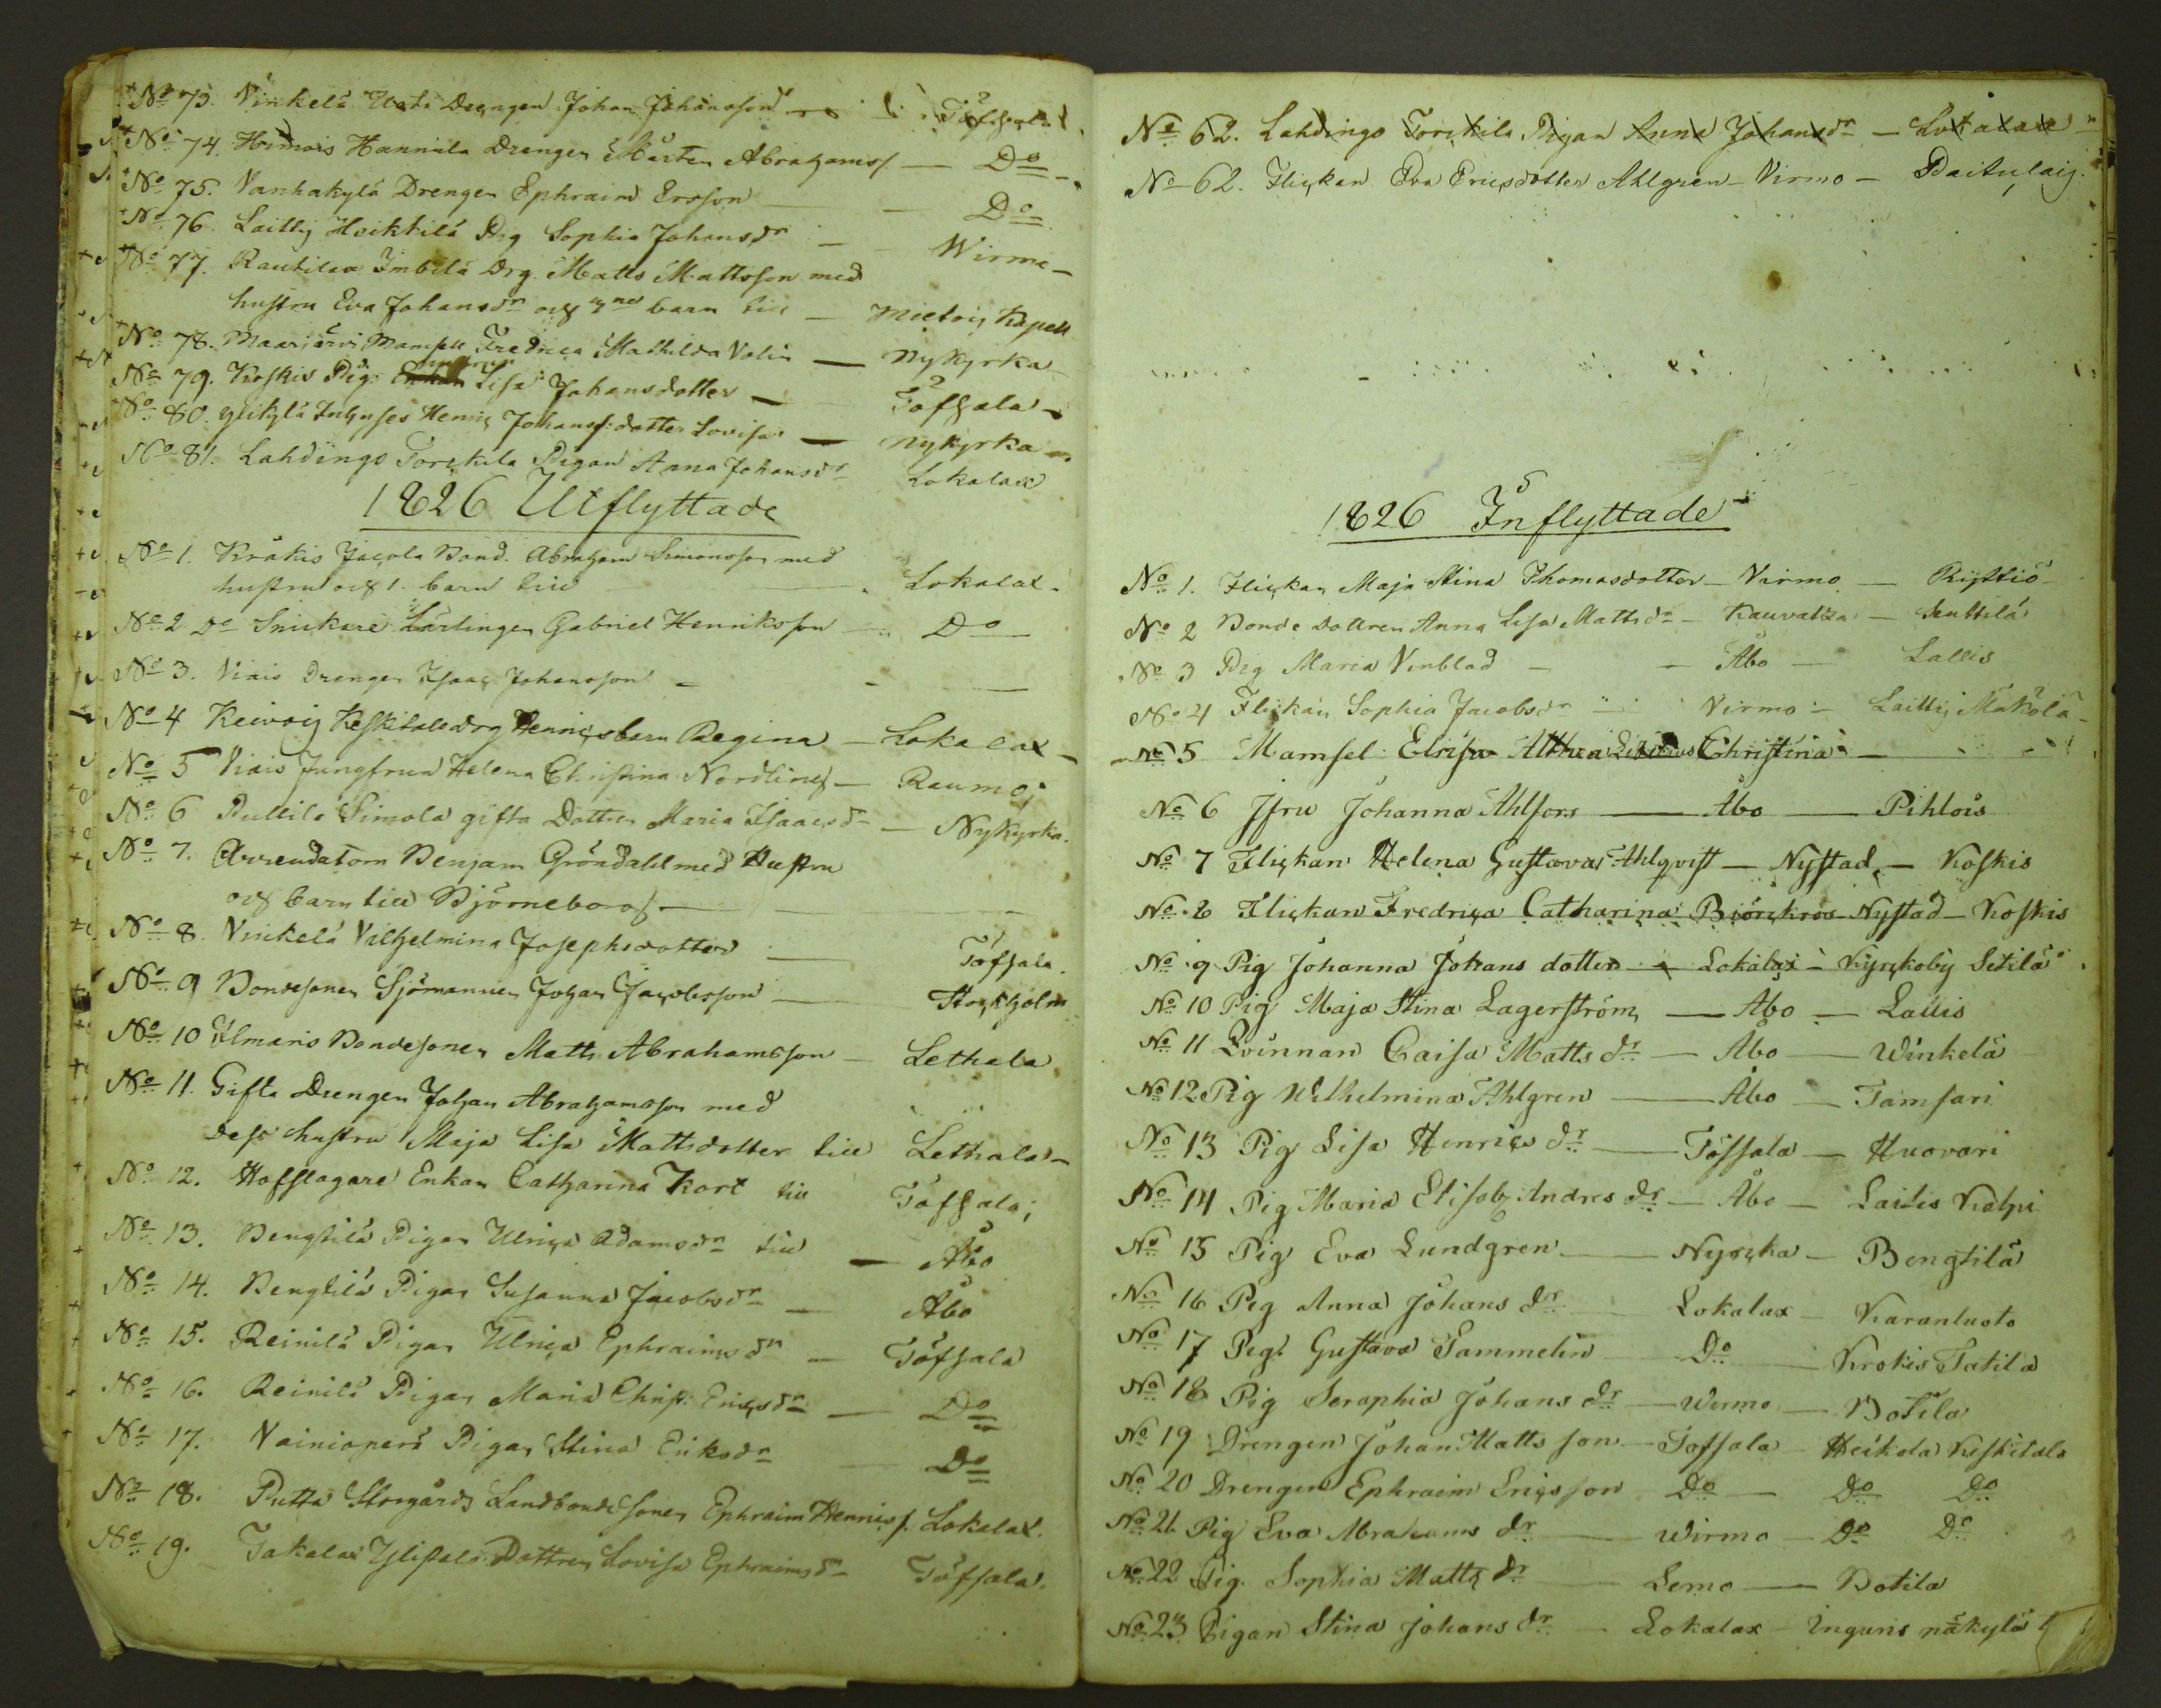 No 73. Vinkelä Uoti Drengen Johan Johansson Töfsala
No 74. Hannula Drengen Mårten Abrahamss. — Do
No 75. Vanhakylä Drengen Ephraim Ersson — Do
No 76. Laittis Heikkilä Prg Sophia Johansdr — Wirmo
No 77. Rautila Drg. Matts Mattsson med
hustru Eva Johansdr och barn till — Mietois Kapell
No 78. Maarjärvi Mamsell Fredrica Mathilda Valin — Nykyrka
No 79. Koskis Pig: Lisa Johansdotter — Töfsala
No 80. Henric Johanss: dotter Lovisa — Nykyrka
No 81. Lahdingo Torckila Pigan Anna Johansdr Lokalax
1826 Utflyttade
No 1. Kråkis Jacola Bond. Abraham Simonsson med
hustru och 1. barn till Lokalax
No 2 Do Snickare Lärlingen Gabriel Henriksson — Do
No 3. Viais Drengen Isaac Johansson —
No 4 Keivois Keskitalo Drg Henrics barn Regina — Lokalax
No 5 Viais Jungfrun Helena Christina Nordlind — Raumo
No 6 Puttila Simola gifta Dottren Maria Isaacsdr — Nykyrka.
No 7. Arrendatorn Benjam Gröndahl med Hustru
och barn till Björneborg
No 8. Vinkelä Vilhelmina Josephsdotter — Töfsala
No 9 Bondesonen Sjömannen Johan Jacobsson — Stockholm
No 10 Ilmaris Bondesonen Matts Abrahamsson — Lethala
No 11. Gifta Drengen Johan Abrahamsson med
dess hustru Maja Lisa Mattsdotter till Lethala
No 12. Hofslagare Enkan Catharina Kort till Töfsala
No 13. Bengtilä Pigan Ulrica Adamsdr till — Åbo
No 14. Bengtilä Pigan Susanna Jacobsdr — Åbo
No 15. Reinilä Pigan Ulrica Ephraimsdr — Töfsala
No 16. Reinilä Pigan Maria Chris: Ericsdr — Do
No 17. Vainionperä Pigan Stina Eriksdr Do
No 18. Putta Storgårds Landbonde Sonen Ephraim Henricss. Lokalax.
No 19. Takalax Ylistalo Dottren Lovisa Ephraimsdr Töfsala.
No 62. Lahdingo Torckila Pigan Anna Johansdr — Lokalax
No 62. Flickan Eva Ericsdotter Ahlgren — Virmo —
1826 Inflyttade
No 1. Flickan Maja Stina Thomasdotter — Virmo —
No 2 Bonde Dottren Anna Lisa Mattsdr — Kauvatsa —
No 3 Pig Maria Vinblad — Åbo — Lallis
No 4 Flickan Sophia Jacobsdr Virmo — Laittis Mäkölä
No 5 Mamsel Christina
No 6 Jfru Johanna Ahlfors — Åbo — Pihlois
No 7 Flickan Helena Gustava Ahlqvist — Nystad — Koskis
No 8 Flickan Fredrica Catharina Björckroos — Nystad — Koskis
No 9 Pig Johanna Johans dotter — Lokalax — Kyrckoby Setilä
No 10 Pig Maja Stina Lagerström — Åbo — Lallis
No 11 Qvinnan Caisa Matts dr — Åbo — Winkelä
No 12 Pig Wilhelmina Ahlgren — Åbo — Tamsari
No 13 Pig Lisa Henrics dr — Töfsala — Huovari
No 14 Pig Maria Elisab Andres dr — Åbo — Laitis Kälpi
No 15 Pig Eva Lundgren — Nyrcka — Bengtilä
No 16 Pig Anna Johans dr Lokalax — Karanluoto
No 17 Pig. Gustava Sammelin Do — Krokis Tatila
No 18 Pig Seraphia Johans dr — Wirmo — Botila
No 19 Drengen Johan Matts son — Tofsala — Heikola Keskitalo
No 20 Drengen Ephraim Ericsson Do — Do Do
No 21 Pig Eva Abrahams dr — Wirmo — Do Do
No 22 Pig. Sophia Matts dr — Lemo — Botila
No 23 Pigan Stina Johans dr — Lokalax — Inguris näkylä